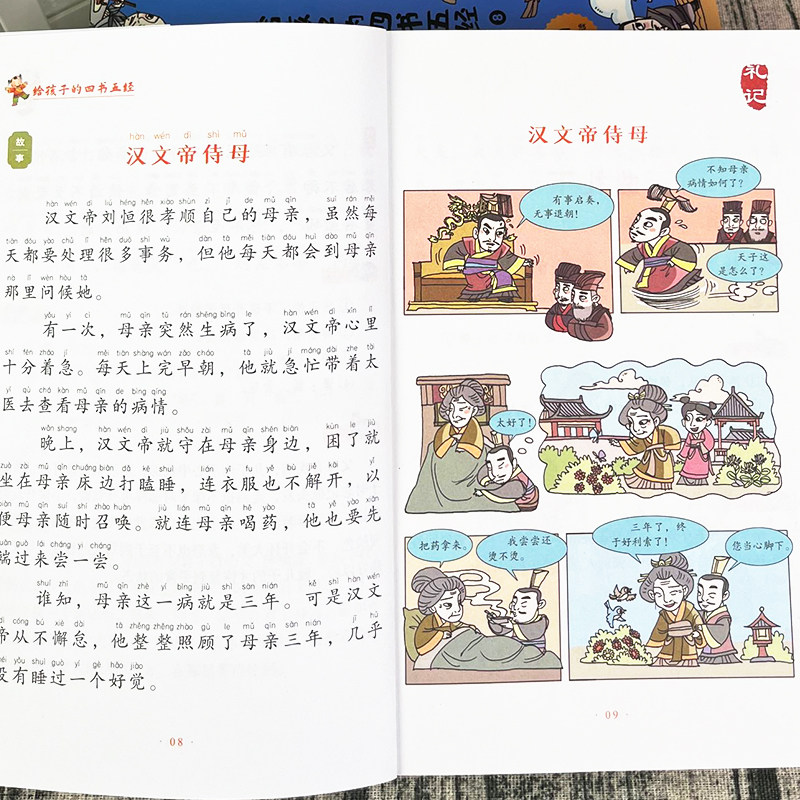 四书五经 8
给孩子的四书五经
故事
hàn wén dì shì mǔ
汉文帝侍母
hàn wén dì liú héng hěn xiào shùn zì jǐ de mǔ qīn suī rán měi
汉文帝刘恒很孝顺自己的母亲，虽然每
tiān dōu yào chǔ lǐ hěn duō shì wù dàn tā měi tiān dōu huì dào mǔ qīn
天都要处理很多事务，但他每天都会到母亲
nà lǐ wèn hòu tā
那里问候她。
yǒu yí cì mǔ qīn tū rán shēng bìng le hàn wén dì xīn lǐ
有一次，母亲突然生病了，汉文帝心里
shí fēn zháo jí měi tiān shàng wán zǎo cháo tā jiù jí máng dài zhe tài
十分着急。每天上完早朝，他就急忙带着太
yī qù chá kàn mǔ qīn de bìng qíng
医去查看母亲的病情。
wǎn shang hàn wén dì jiù shǒu zài mǔ qīn shēn biān kùn le jiù
晚上，汉文帝就守在母亲身边，困了就
zuò zài mǔ qīn chuáng biān dǎ kē shuì lián yī fu yě bù jiě kāi yǐ
坐在母亲床边打瞌睡，连衣服也不解开，以
biàn mǔ qīn suí shí zhào huàn jiù lián mǔ qīn hē yào tā yě yào xiān
便母亲随时召唤。就连母亲喝药，他也要先
duān guò lái cháng yi cháng
端过来尝一尝。
shuí zhī mǔ qīn zhè yí bìng jiù shì sān nián kě shì hàn wén
谁知，母亲这一病就是三年。可是汉文
dì cóng bú xiè dài tā zhěng zhěng zhào gù le mǔ qīn sān nián jī hū
帝从不懈怠，他整整照顾了母亲三年，几乎
méi yǒu shuì guò yí gè hǎo jiào
没有睡过一个好觉。
· 08 ·
礼记
汉文帝侍母
有事启奏，
无事退朝！
不知母亲
病情如何了？
天子这
是怎么了？
太好了！
把药拿来。
我尝尝还
烫不烫。
三年了，终
于好利索了！
您当心脚下。
· 09 ·